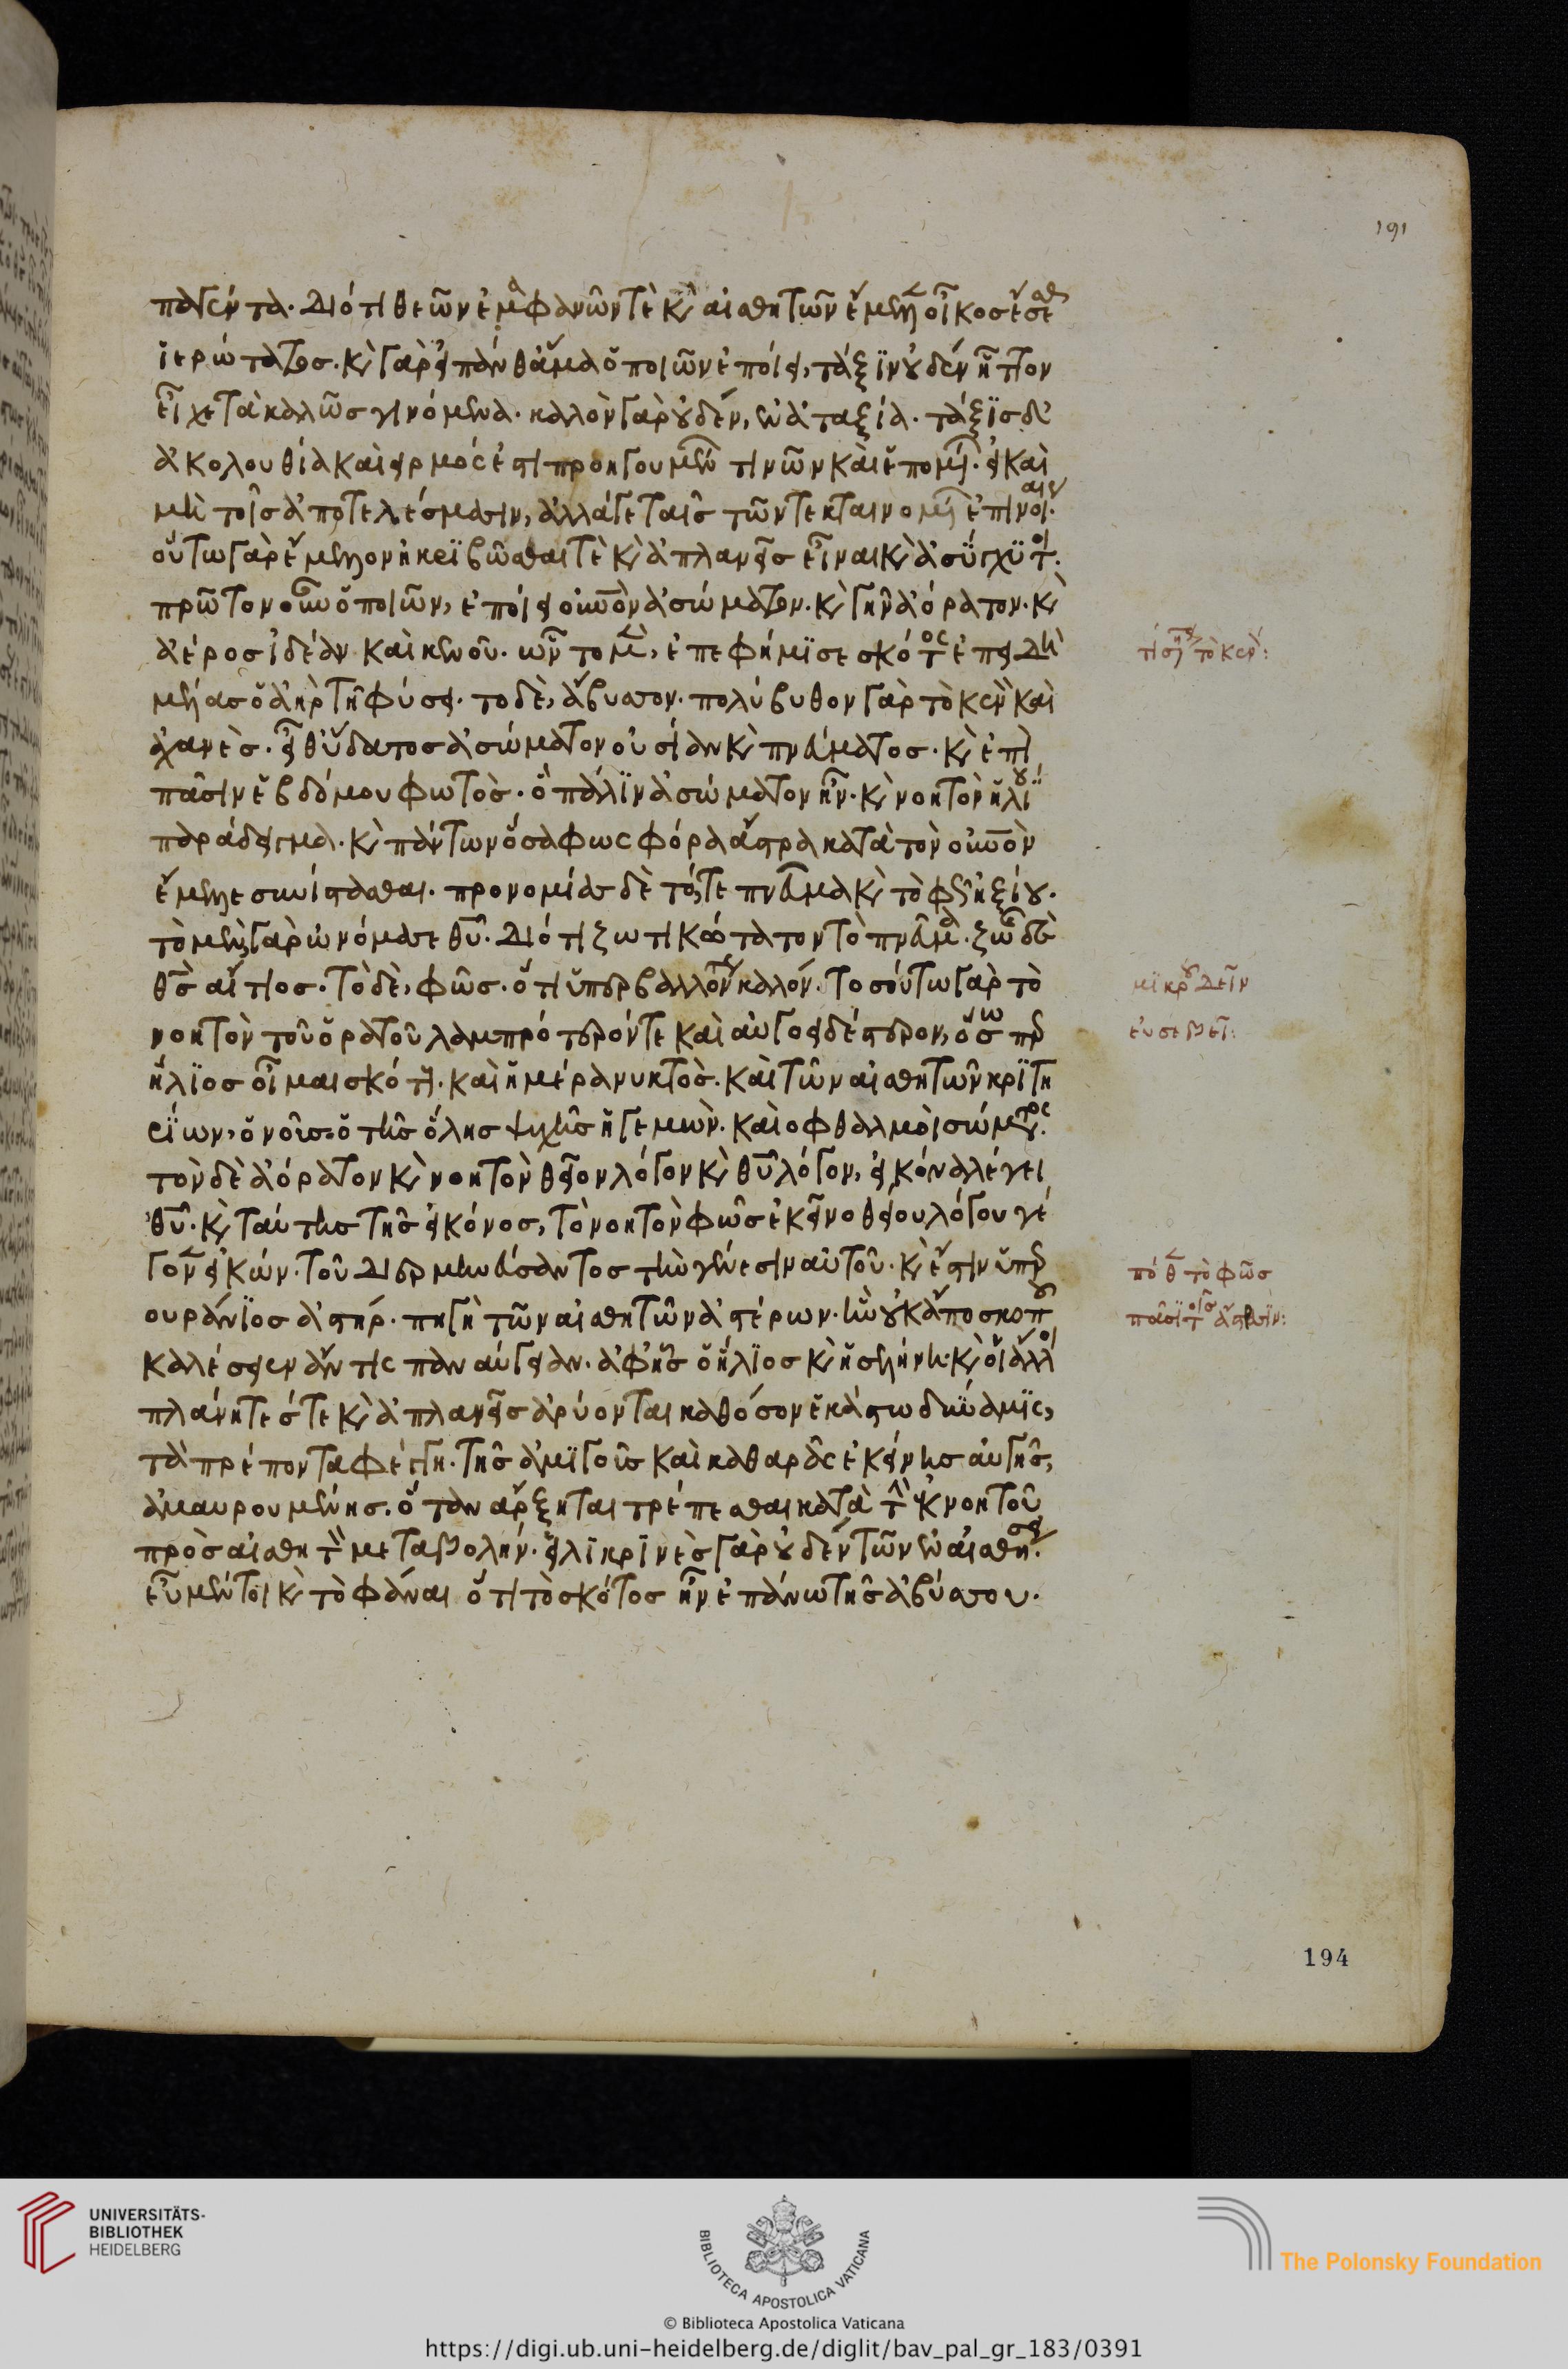 παγέντα. διότι θεῶν ἐμφανῶν τὲ καὶ αἰσθητῶν ἔμελλεν οἶκος ἔσεσθαι
ἱερώτατος. καὶ γὰρ εἰ πάνθ' ἅμα ὁ ποιῶν ἐποίει, τάξιν οὐδὲν ἧττον
εἶχε τὰ καλῶς γινόμενα. καλὸν γὰρ οὐδὲν, ἐν ἀταξία. τάξις δὲ
ἀκολουθία καὶ εἱρμός ἐστι προηγουμένων τινῶν καὶ ἑπομένων. εἰ καὶ
μὴ τοῖς ἀποτελέσμασιν, ἀλλά γε ταῖς τῶν τεκταινομένων ἐπινοίαις.
οὕτω γὰρ ἔμελλον ἠκριβῶσθαι τὲ καὶ ἀπλανεῖς εἶναι καὶ ἀσύγχυτοι.
πρῶτον οὖν ὁ ποιῶν, ἐποίει οὐνὸν ἀσώματον. καὶ γῆν ἀόρατον. καὶ
ἀέρος ἰδέαν καὶ κενοῦ. ὧν τὸ μὲν, ἐπεφήμισε σκότος ἐπειδὴ
μέλας ὁ ἀὴρ τῆ φύσει. τὸ δὲ, ἄβυσσον. πολύβυθον γὰρ τὸ κενὸν καὶ
ἀχανὲς. εἶθ' ὕδατος ἀσώματον οὐσίαν καὶ πνεύματος. καὶ ἐπὶ
πᾶσιν ἑβδόμου φωτὸς. ὃ πάλιν ἀσώματον ἦν. καὶ νοητὸν ἡλίου
παράδειγμα. καὶ πάντων ὅσα φωσφόρα ἄστρα κατὰ τὸν οὐνὸν
ἔμελλε συνίστασθαι. προνομίας δὲ τό, τε πνεῦμα καὶ τὸ φῶς ἠξίου.
τὸ μὲν γὰρ ὠνόμασε θυ. διότι ζωτικώτατον τὸ πνεῦμα. ζωῆς δὲ
θς αἴτιος. τὸ δὲ, φῶς. ὅτι ὑπερβαλλόντως καλόν. τοσούτω γὰρ τὸ
νοητὸν τοῦ ὁρατοῦ λαμπρότερόν τε καὶ αὐγοειδέστερον, ὅσωπερ
ἥλιος οἶμαι σκότους. καὶ ἡμέρα νυκτὸς. καὶ τῶν αἰσθητῶν κριτη
ρίων, ὁ νοῦς. ὁ τῆς ὅλης ψυχῆς ἡγεμὼν. καὶ ὀφθαλμοὶ σώματος.
τὸν δὲ ἀόρατον καὶ νοητὸν θεῖον λόγον καὶ θυ λόγον, εἰκόνα λέγει
θυ. καὶ ταύτης τῆς εἰκόνος, τὸ νοητὸν φῶς ἐκεῖνο θείου λόγου γέ
γονεν εἰκών. τοῦ διερμηνεύσαντος τὴν γένεσιν αὐτοῦ. καὶ ἔστιν ὑπερ
ουράνιος ἀστήρ. πηγὴ τῶν αἰσθητῶν ἀστέρων. ἣν οὐκ ἀπὸ σκοποῦ
καλέσειεν ἄν τις παναύγειαν. ἀφ' ἧς ὁ ἥλιος καὶ ἡ σελήνη. καὶ οἱ ἄλλοι
πλάνητές τε καὶ ἀπλανεῖς ἀρύονται καθόσον ἑκάστω δύναμις,
τὰ πρέποντα φέγγη. τῆς ἀμιγοῦς καὶ καθαρᾶς ἐκείνης αὐγῆς,
ἀμαυρουμένης. ὅταν ἄρξηται τρέπεσθαι κατὰ τὴν ἐκ νοητοῦ
πρὸς αἰσθητὸν μεταβολήν. εἰλικρινὲς γὰρ οὐδὲν τῶν ἐν αἰσθήσει.
εὖ μέντοι καὶ τὸ φάναι ὅτι τὸ σκότος ἦν ἐπάνω τῆς ἀβύσσου.
191
τὸ κενὸν:
μικροῦ δεῖν
εὐσεβεῖ:
πόθεν τὸ φῶς
πᾶσι τοῖς ἄστρασιν:
194
UNIVERSITÄTS-
BIBLIOTHEK
HEIDELBERG
BIBLIOTECA APOSTOLICA VATICANA
The Polonsky Foundation
© Biblioteca Apostolica Vaticana
https://digi.ub.uni-heidelberg.de/diglit/bav_pal_gr_183/0391